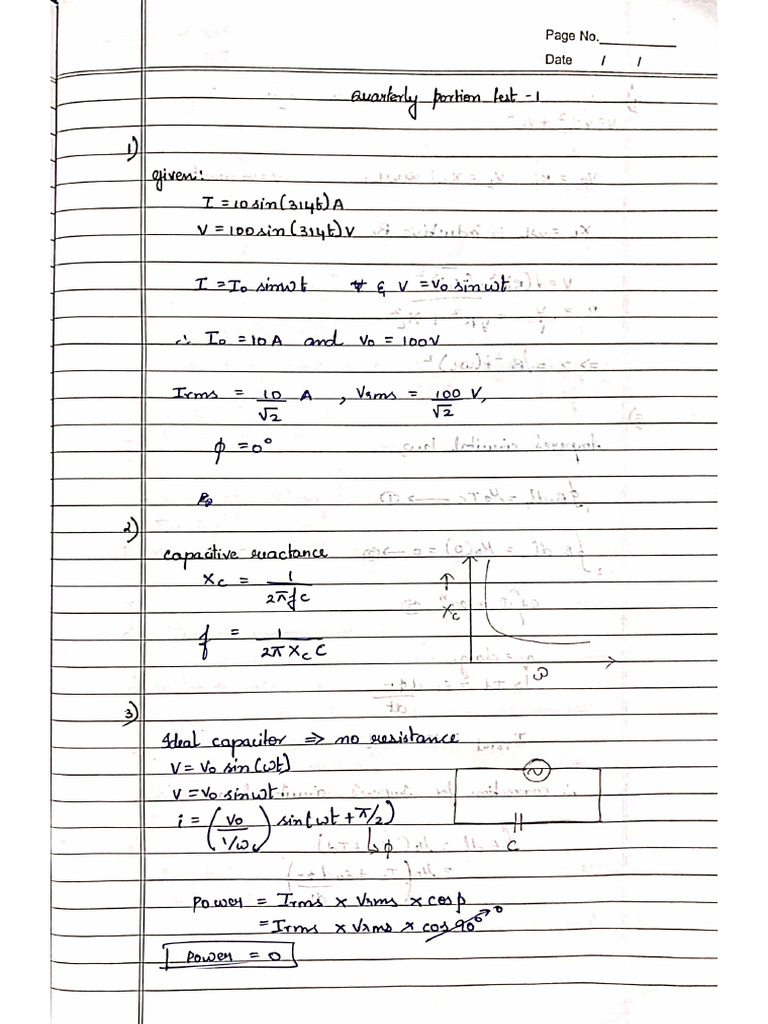 Page No.
Date / /
Quarterly portion test -1
1)
given:
I = 10 sin(314t)A
V = 100 sin(314t)V
I = I₀ sinωt & V = V₀ sin ωt
∴ I₀ = 10A and V₀ = 100V
Irms = 10/√2 A , Vrms = 100/√2 V,
ϕ = 0°
2)
capacitive reactance
Xc = 1/2πfc
f = 1/2πXcC
↑
Xc
ω
3)
Ideal capacitor ⇒ no resistance
V = V₀ sin(ωt)
V = V₀ sinωt.
i = (V₀/1/ωc) sin(ωt + π/2)
↳ϕ
C
Power = Irms x Vrms x cosϕ
= Irms x Vrms x cos90° 0
Power = 0